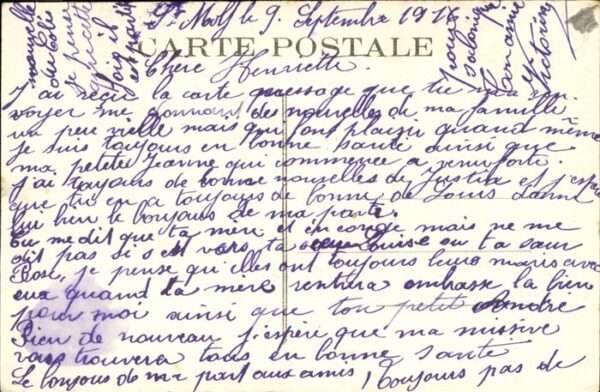 St Molf le 9 Septembre 1916
CARTE POSTALE
Chère Henriette.
J'ai reçu la carte message que tu m'a en
voyer me donnant des nouvelles de ma famille
un peu vielle mais qui font plaisir quand même
je suis toujours en bonne santé ainsi que
ma petite Jeanne qui commence a venir forte.
J'ai toujours de bonne nouvelles de Justin et j'espère
que tu en a toujours de bonne de Louis donne
lui bien le bonjour de ma part.
tu me dit que ta mère et en congé mais ne me
dit pas si s'est vers ta Louise ou ta sœur
Rose, je pense qu'elles ont toujours leurs maris avec
eux quand ta mère rentrera embrasse la bien
pour moi ainsi que ton petit André
Rien de nouveau j'espère que ma missive
vous trouvera tous en bonne santé
Le bonjour de ma part aux amis, Toujours pas de
nouvelle
du
je pense
qu'il
est
Ton amie
Victorine